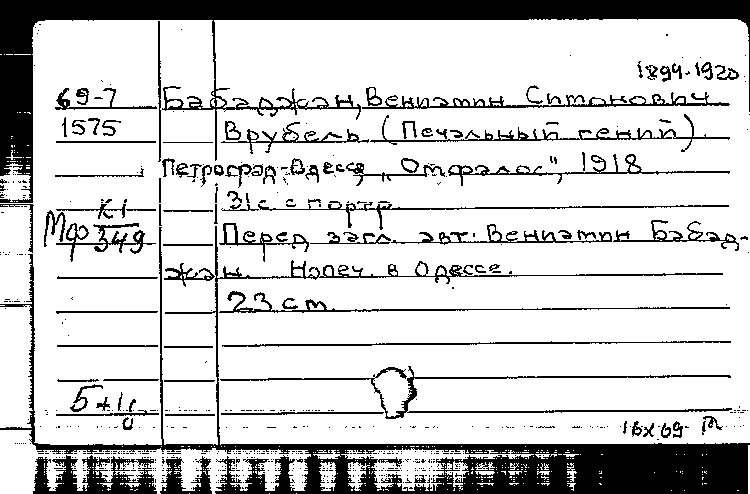 1894-1920
69-7 Бабаджан, Вениамин Симонович
1575 Врубель (Печальный гений).
Петроград-Одесса, „Омфалос", 1918.
31 с. с портр.
Мф К1/349
Перед загл. авт. Вениамин Бабад-
жан. Напеч. в Одессе.
23 см.